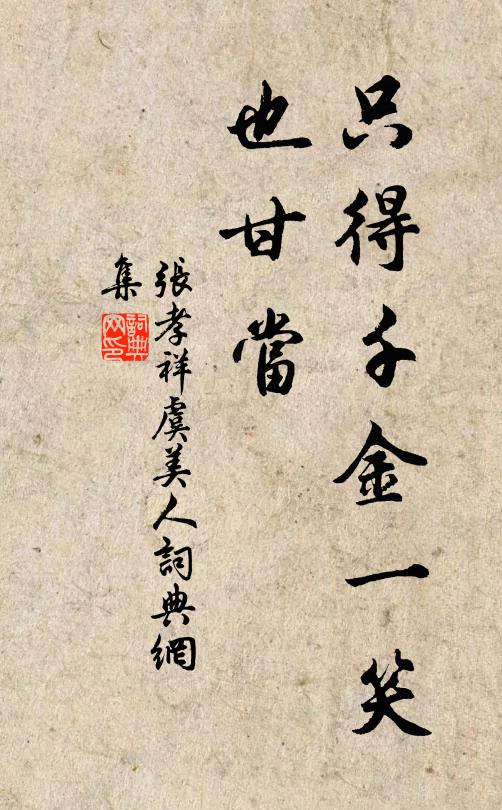 只得千金一笑
也甘當
張孝祥虞美人詞典網
集
詞典
网印